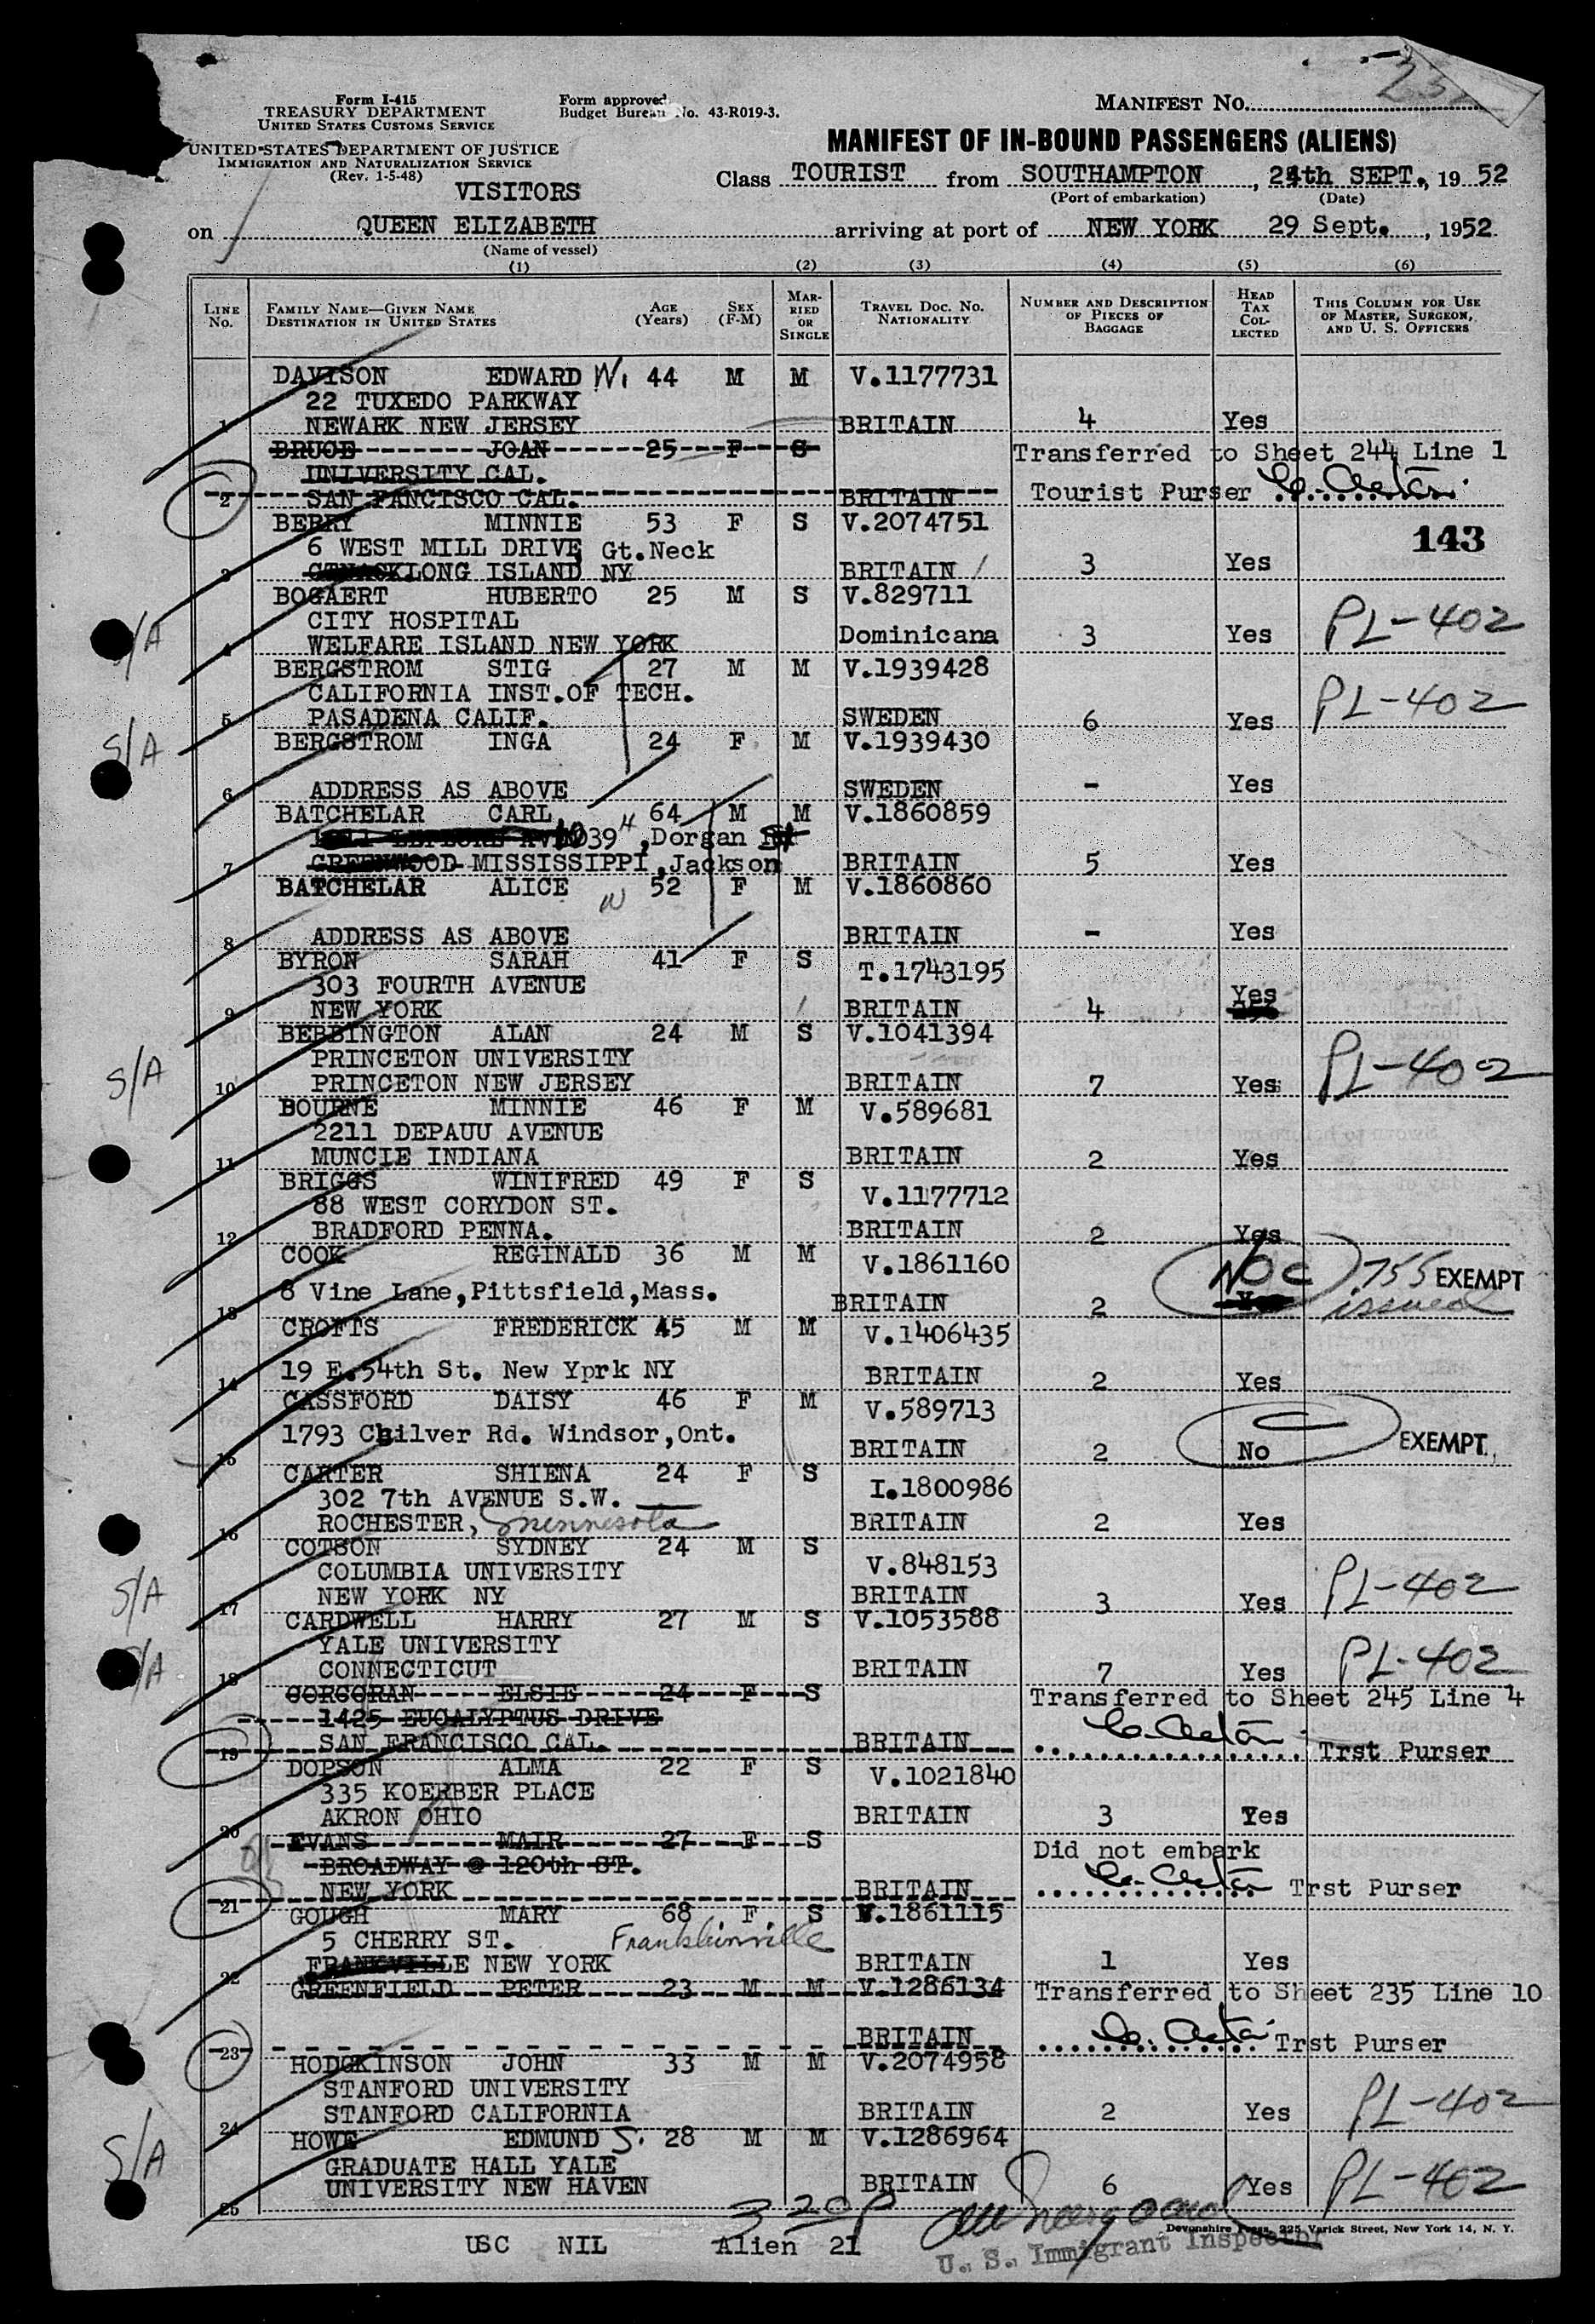 232
Form I-415
TREASURY DEPARTMENT
UNITED STATES CUSTOMS SERVICE
UNITED STATES DEPARTMENT OF JUSTICE
IMMIGRATION AND NATURALIZATION SERVICE
(Rev. 1-5-48)
Form approved.
Budget Bureau No. 43-R019-3.
MANIFEST No.
MANIFEST OF IN-BOUND PASSENGERS (ALIENS)
VISITORS
Class TOURIST from SOUTHAMPTON, 24th SEPT., 1952
(Port of embarkation) (Date)
on QUEEN ELIZABETH arriving at port of NEW YORK 29 Sept., 1952
(Name of vessel)
(1) (2) (3) (4) (5) (6)
LINE No. FAMILY NAME—GIVEN NAME DESTINATION IN UNITED STATES AGE (Years) SEX (F-M) MARRIED OR SINGLE TRAVEL DOC. NO. NATIONALITY NUMBER AND DESCRIPTION OF PIECES OF BAGGAGE HEAD TAX COLLECTED THIS COLUMN FOR USE OF MASTER, SURGEON, AND U. S. OFFICERS
DAVISON EDWARD W. 44 M M V.1177731
22 TUXEDO PARKWAY
1 NEWARK NEW JERSEY BRITAIN 4 Yes
BRUCE JOAN 25 F S Transferred to Sheet 244 Line 1
UNIVERSITY CAL.
2 SAN FANCISCO CAL. BRITAIN Tourist Purser
BERRY MINNIE 53 F S V.2074751 143
6 WEST MILL DRIVE, Gt.Neck
3 LONG ISLAND NY BRITAIN 3 Yes
BOGAERT HUBERTO 25 M S V.829711
CITY HOSPITAL
S/A 4 WELFARE ISLAND NEW YORK Dominicana 3 Yes PL-402
BERGSTROM STIG 27 M M V.1939428
CALIFORNIA INST.OF TECH.
S/A 5 PASADENA CALIF. SWEDEN 6 Yes PL-402
BERGSTROM INGA 24 F M V.1939430
6 ADDRESS AS ABOVE SWEDEN - Yes
BATCHELAR CARL 64 M M V.1860859
1039 , Dorgan St
7 GREENWOOD MISSISSIPPI, Jackson BRITAIN 5 Yes
BATCHELAR ALICE W 52 F M V.1860860
8 ADDRESS AS ABOVE BRITAIN - Yes
BYRON SARAH 41 F S T.1743195
303 FOURTH AVENUE
9 NEW YORK BRITAIN 4 Yes
BEBBINGTON ALAN 24 M S V.1041394
PRINCETON UNIVERSITY
S/A 10 PRINCETON NEW JERSEY BRITAIN 7 Yes PL-402
BOURNE MINNIE 46 F M V.589681
2211 DEPAUU AVENUE
11 MUNCIE INDIANA BRITAIN 2 Yes
BRIGGS WINIFRED 49 F S V.1177712
88 WEST CORYDON ST.
12 BRADFORD PENNA. BRITAIN 2 Yes
COOK REGINALD 36 M M V.1861160
13 8 Vine Lane,Pittsfield,Mass. BRITAIN 2 NO C 755 issued EXEMPT
CROFTS FREDERICK 45 M M V.1406435
14 19 E.54th St. New Yprk NY BRITAIN 2 Yes
CASSFORD DAISY 46 F M V.589713
15 1793 Chilver Rd. Windsor,Ont. BRITAIN 2 No C EXEMPT
CARTER SHIENA 24 F S I.1800986
302 7th AVENUE S.W.
16 ROCHESTER, Minnesota BRITAIN 2 Yes
COTSON SYDNEY 24 M S V.848153
COLUMBIA UNIVERSITY
S/A 17 NEW YORK NY BRITAIN 3 Yes PL-402
CARDWELL HARRY 27 M S V.1053588
YALE UNIVERSITY
S/A 18 CONNECTICUT BRITAIN 7 Yes PL-402
CORCORAN ELSIE 24 F S Transferred to Sheet 245 Line 4
1425 EUCALYPTUS DRIVE
19 SAN FRANCISCO CAL. BRITAIN Trst Purser
DOPSON ALMA 22 F S V.1021840
335 KOERBER PLACE
20 AKRON OHIO BRITAIN 3 Yes
EVANS MAIR 27 F S Did not embark
BROADWAY @ 120th ST.
21 NEW YORK BRITAIN Trst Purser
GOUGH MARY 68 F S V.1861115
5 CHERRY ST. Franklinville
22 FRANKVILLE NEW YORK BRITAIN 1 Yes
GREENFIELD PETER 23 M M V.1286134 Transferred to Sheet 235 Line 10
23 BRITAIN Trst Purser
HODGKINSON JOHN 33 M M V.2074958
STANFORD UNIVERSITY
24 STANFORD CALIFORNIA BRITAIN 2 Yes PL-402
HOWE EDMUND S. 28 M M V.1286964
GRADUATE HALL YALE
S/A 25 UNIVERSITY NEW HAVEN BRITAIN 6 Yes PL-402
3 20 P
Devonshire Press, 225 Varick Street, New York 14, N. Y.
USC NIL Alien 21
U. S. Immigrant Inspector